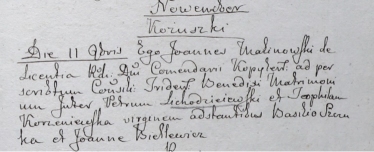 November
Koruszki
Die 11 9bris Ego Joannes Malinowski de
Licentia Rdi. Dni Comendarii Kopyterl ad per
scriptum Consilii Trident: Benedixi Matrimoni
um Inter Petrum Lichodziejewski et Teophilam
Korzeniewska virginem adstantibus Basilio Szern
ka et Joanne Bielkewicz
10